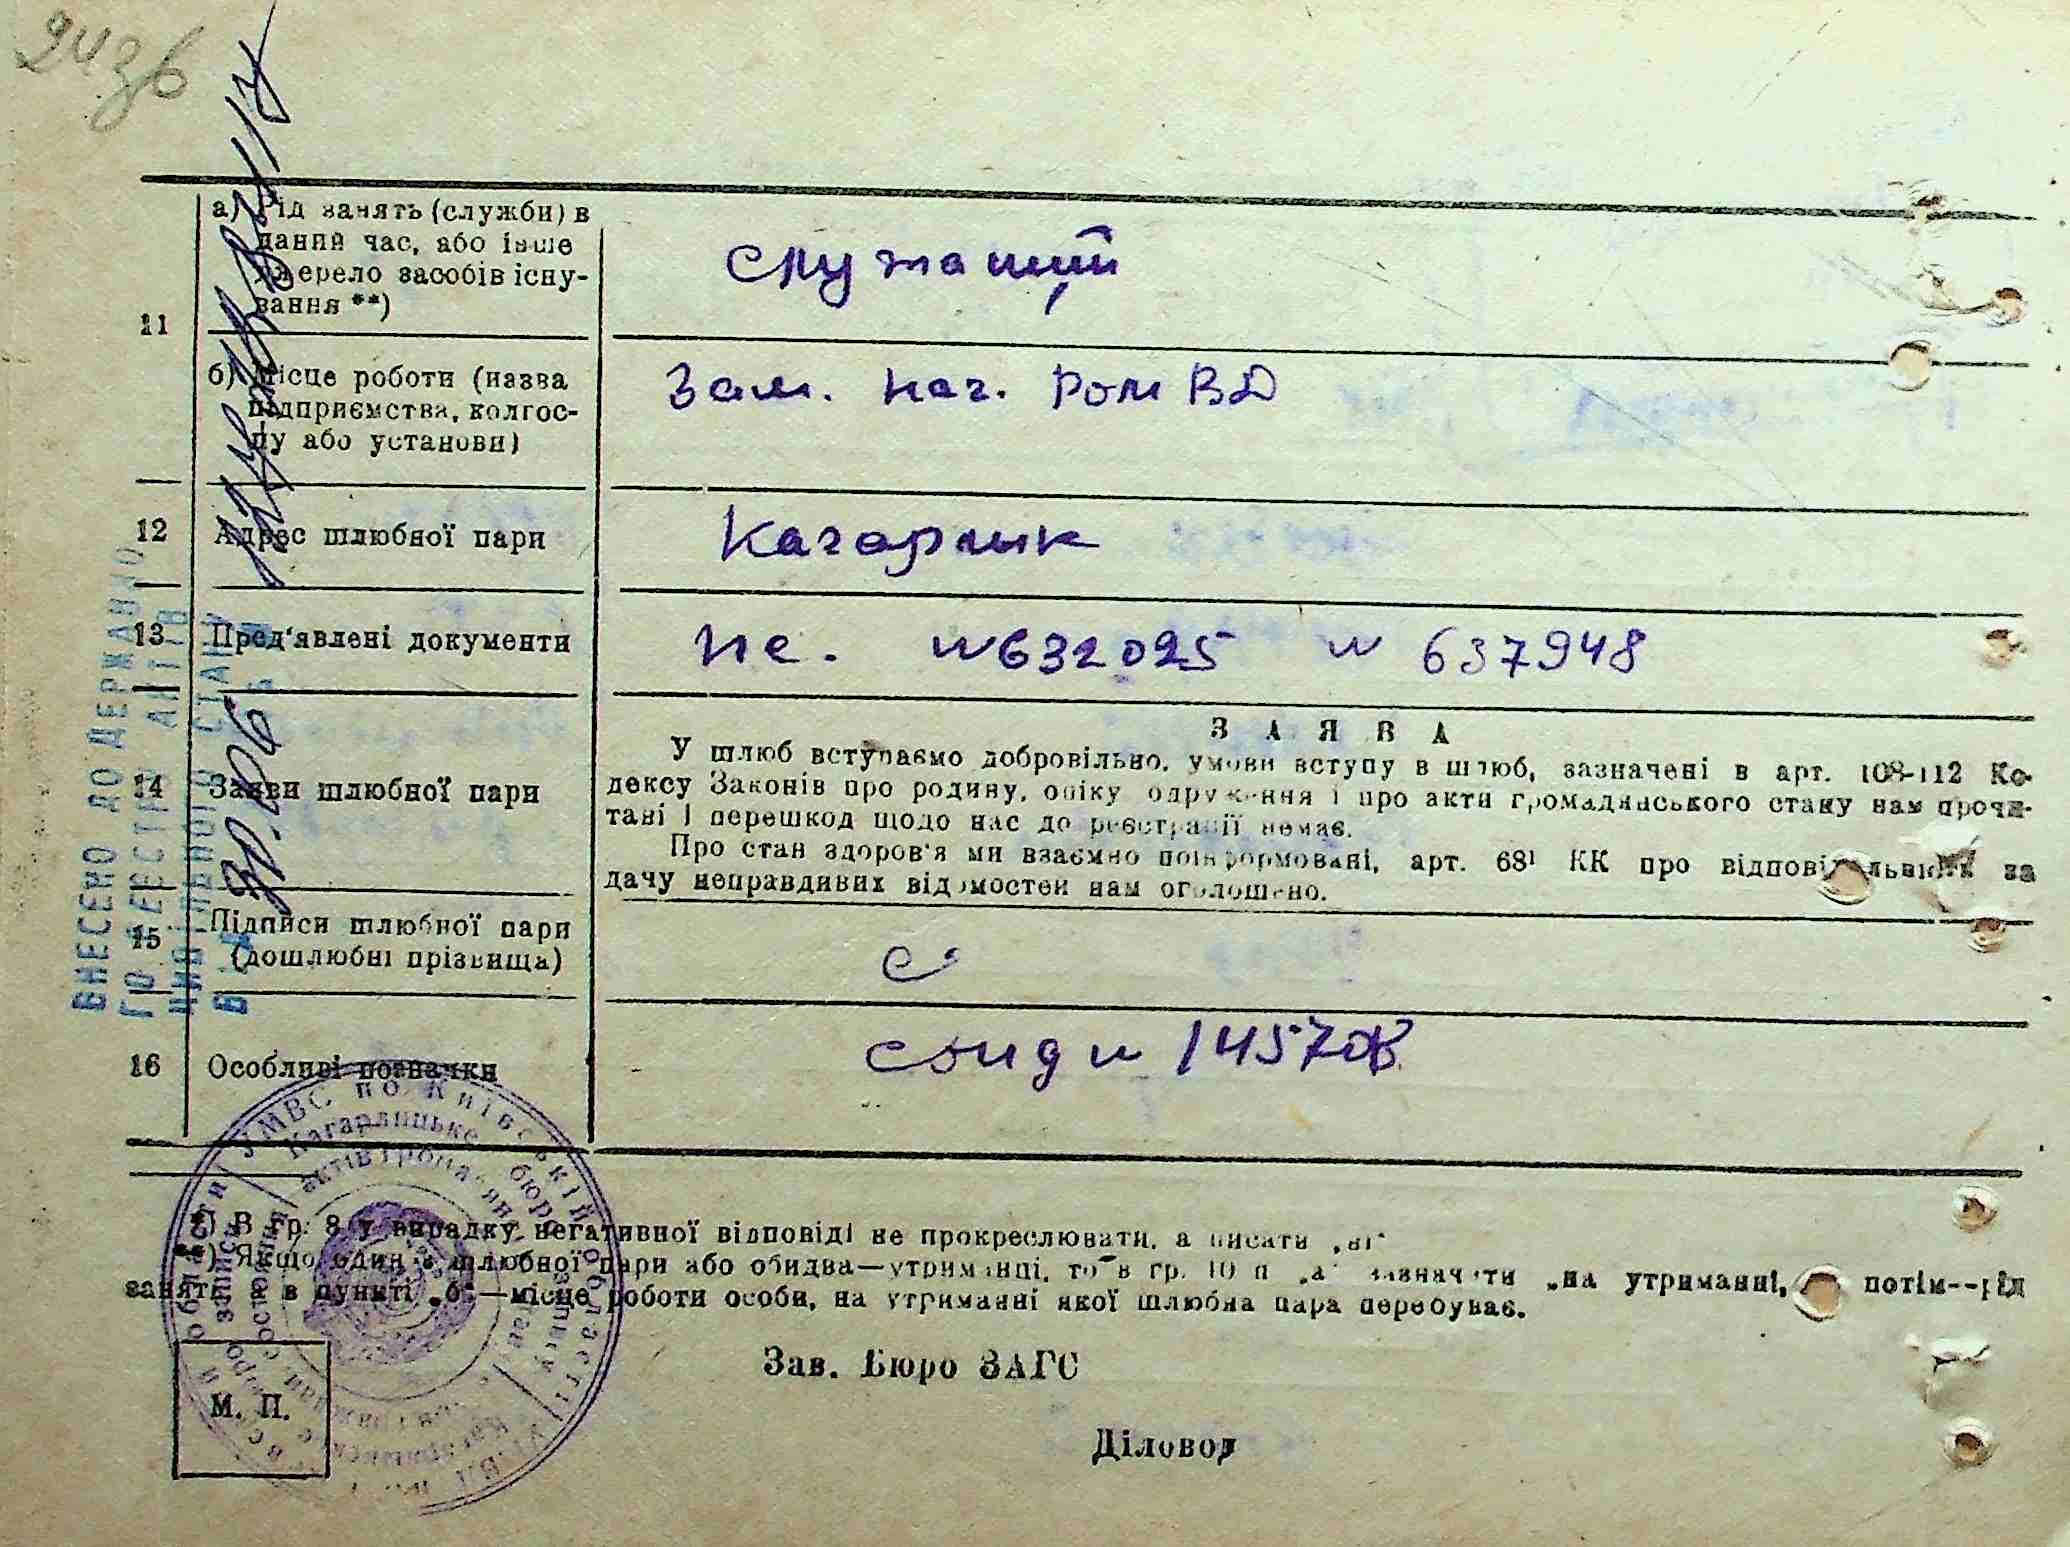 11
а) Рід занять (служби) в
даний час, або інше
джерело засобів існу-
вання **)
служащий
б) Місце роботи (назва
підприємства, колгос-
пу або установи)
Зам. нач. РомВД
12
Адрес шлюбної пари
Кагарлик
13
Пред'явлені документи
пс. № 632025 № 637948
14
Заяви шлюбної пари
ЗАЯВА
У шлюб вступаємо добровільно, умови вступу в шлюб, зазначені в арт. 108-112 Ко-
дексу Законів про родину, опіку одруження і про акти громадянського стану нам прочи-
тані і перешкод щодо нас до реєстрації немає.
Про стан здоров'я ми взаємно поінформовані, арт. 68¹ КК про відповідальність за
дачу неправдивих відомостей нам оголошено.
15
Підписи шлюбної пари
(дошлюбні прізвища)
16
Особливі позначки
№ 14570
ВНЕСЕНО ДО ДЕРЖАВНО
ГО РЕЄСТРУ АКТІВ
ЦИВІЛЬНОГО СТАНУ
УМВС по Київській області
Кагарлицьке бюро запису
актів громадян стану
*) В гр. 8 у випадку негативної відповіді не прокреслювати, а писати „ні"
**) Якщо один з шлюбної пари або обидва—утриманці, то в гр. 10 п „а" зазначити „на утриманні, потім--рід
занять, а в пункті „б"—місце роботи особи, на утриманні якої шлюбна пара перебуває.
Зав. Бюро ЗАГС
М. П.
Діловод